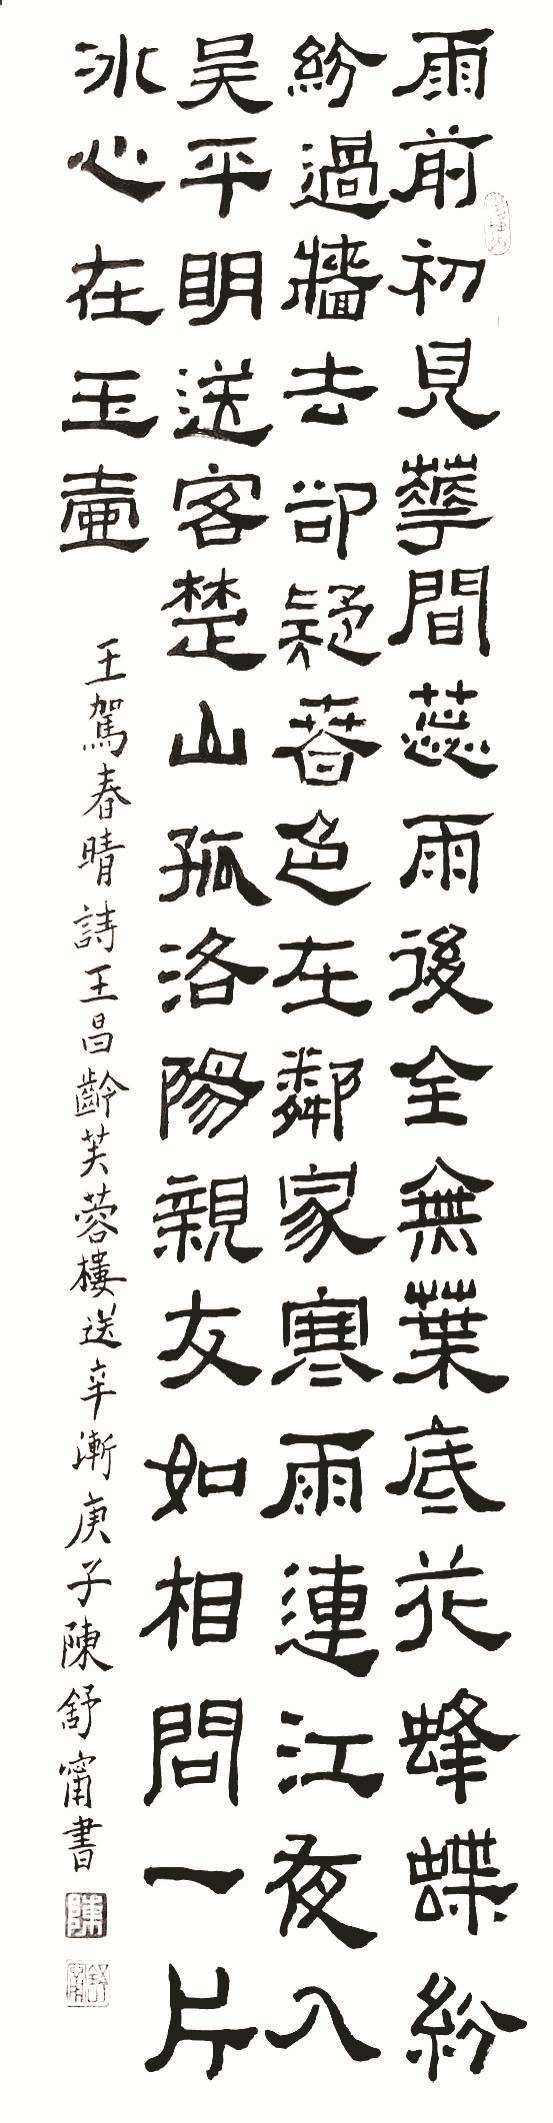 雨前初見華間蕊雨後全無葉底花蜂蝶紛
紛過牆去卻疑春色在鄰家寒雨連江夜入
吳平明送客楚山孤洛陽親友如相問一片
冰心在玉壺
王駕春晴詩王昌齡芙蓉樓送辛漸庚子陳舒甯書
陳